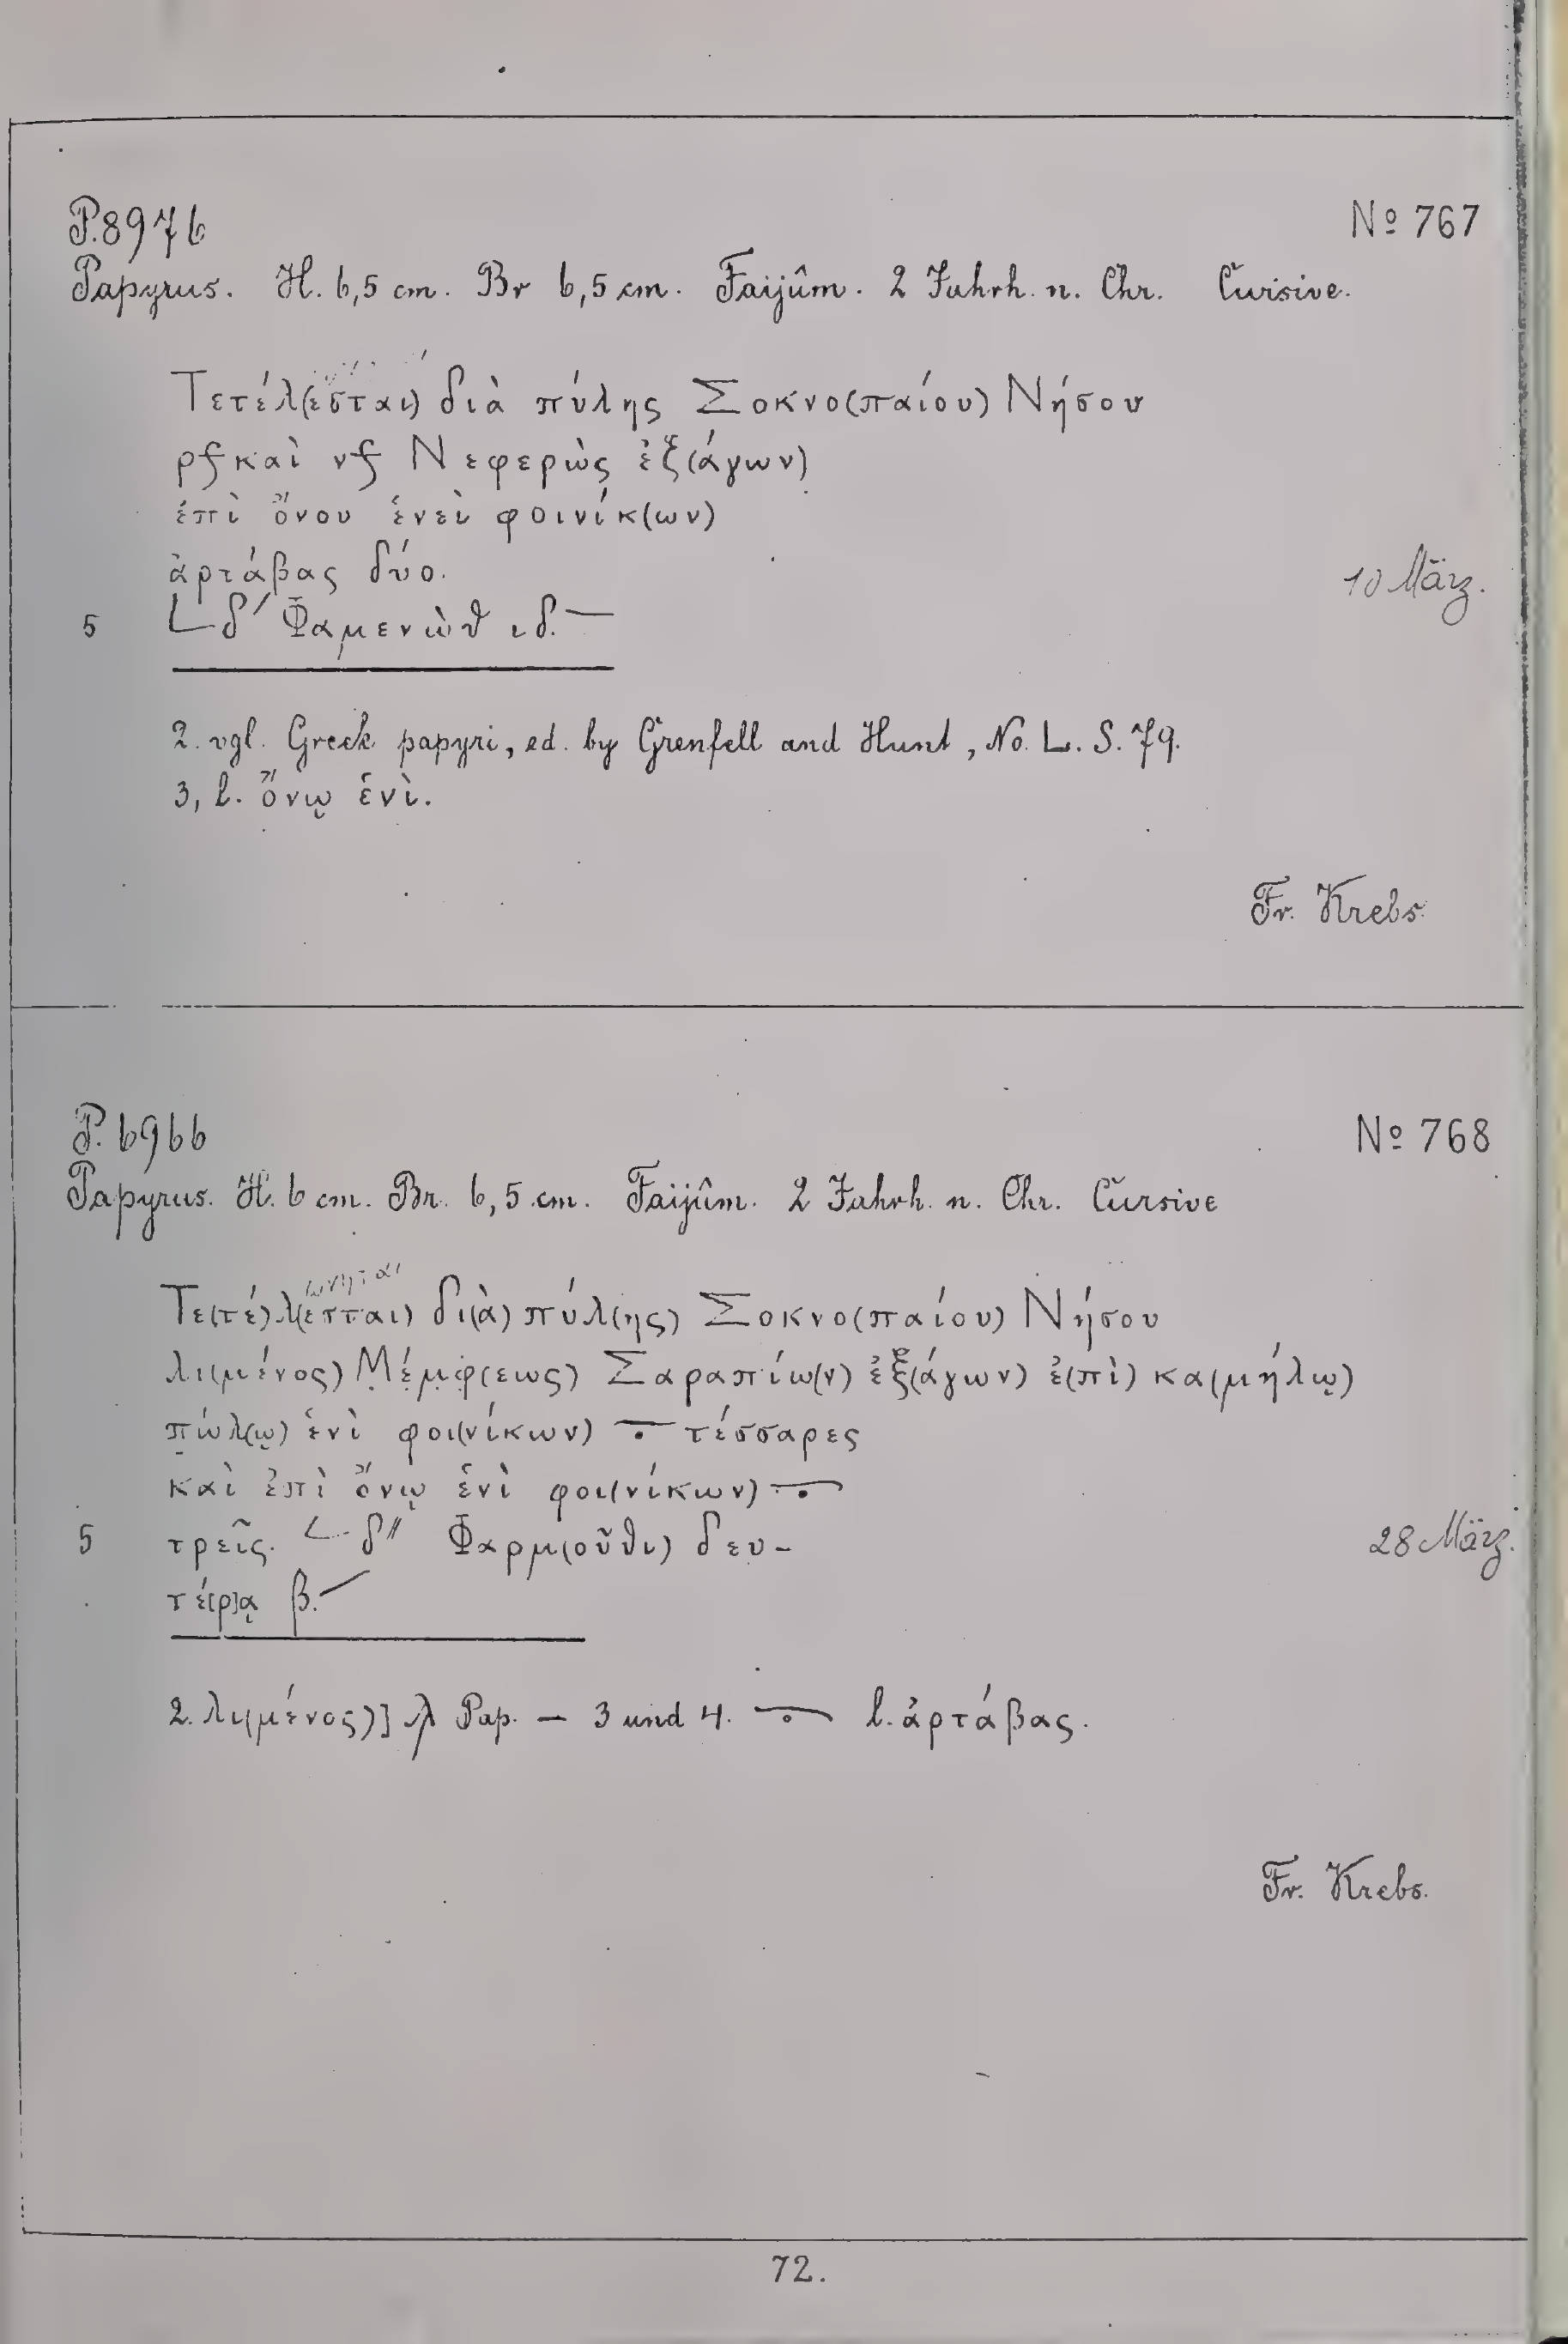 P. 8976
No 767
Papyrus. H. 6,5 cm. Br 6,5 cm. Faijûm. 2 Jahrh. n. Chr. Cursive.
Τετέλ(εσται) διὰ πύλης Σοκνο(παίου) Νήσου
ρϛ καὶ νϛ Νεφερὼς ἐξ(άγων)
ἐπὶ ὄνου ἑνεὶ φοινίκ(ων)
ἀρτάβας δύο.
10 März.
5 L δ´ Φαμενὼθ ιδ. —
2. vgl. Greek papyri, ed. by Grenfell and Hunt, No. L. S. 79.
3, l. ὄνῳ ἑνὶ.
Fr. Krebs.
P. 6966
No 768
Papyrus. H. 6 cm. Br. 6,5 cm. Faijûm. 2 Jahrh. n. Chr. Cursive
ωνηται
Τε(τέ)λ(εσται) δι(ὰ) πύλ(ης) Σοκνο(παίου) Νήσου
λι(μένος) Μ̣έ̣μ̣φ̣(εως) Σαραπίω(ν) ἐξ(άγων) ἐ(πὶ) κα(μήλῳ)
π̣ώλ(ῳ) ἑνὶ φοι(νίκων) ⨪ τέσσαρες
καὶ ἐπὶ ὄνῳ ἑνὶ φοι(νίκων) ⨪
5 τρεῖς. L δ´´ Φαρμ(οῦθι) δευ-
28 März.
τέ[ρ]ᾳ β.
2. λι(μένος)] λ Pap. — 3 und 4. ⨪ l. ἀρτάβας.
Fr. Krebs.
72.